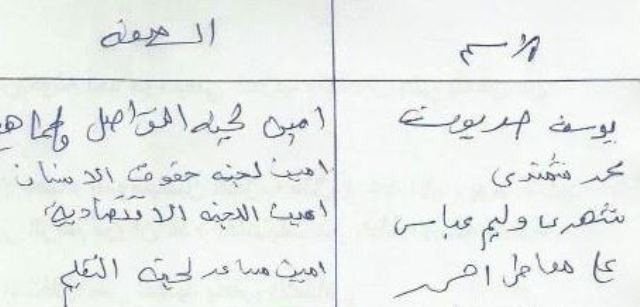 الاسم الصفة
يوسف صديوسف امين لجنه التواصل والجماهي
محمد شمندى امين لجنه حقوق الانسان
شهدى وليم عباس امين اللجنه الاقتصادية
على احمد امين مساعد لجنة التعليم